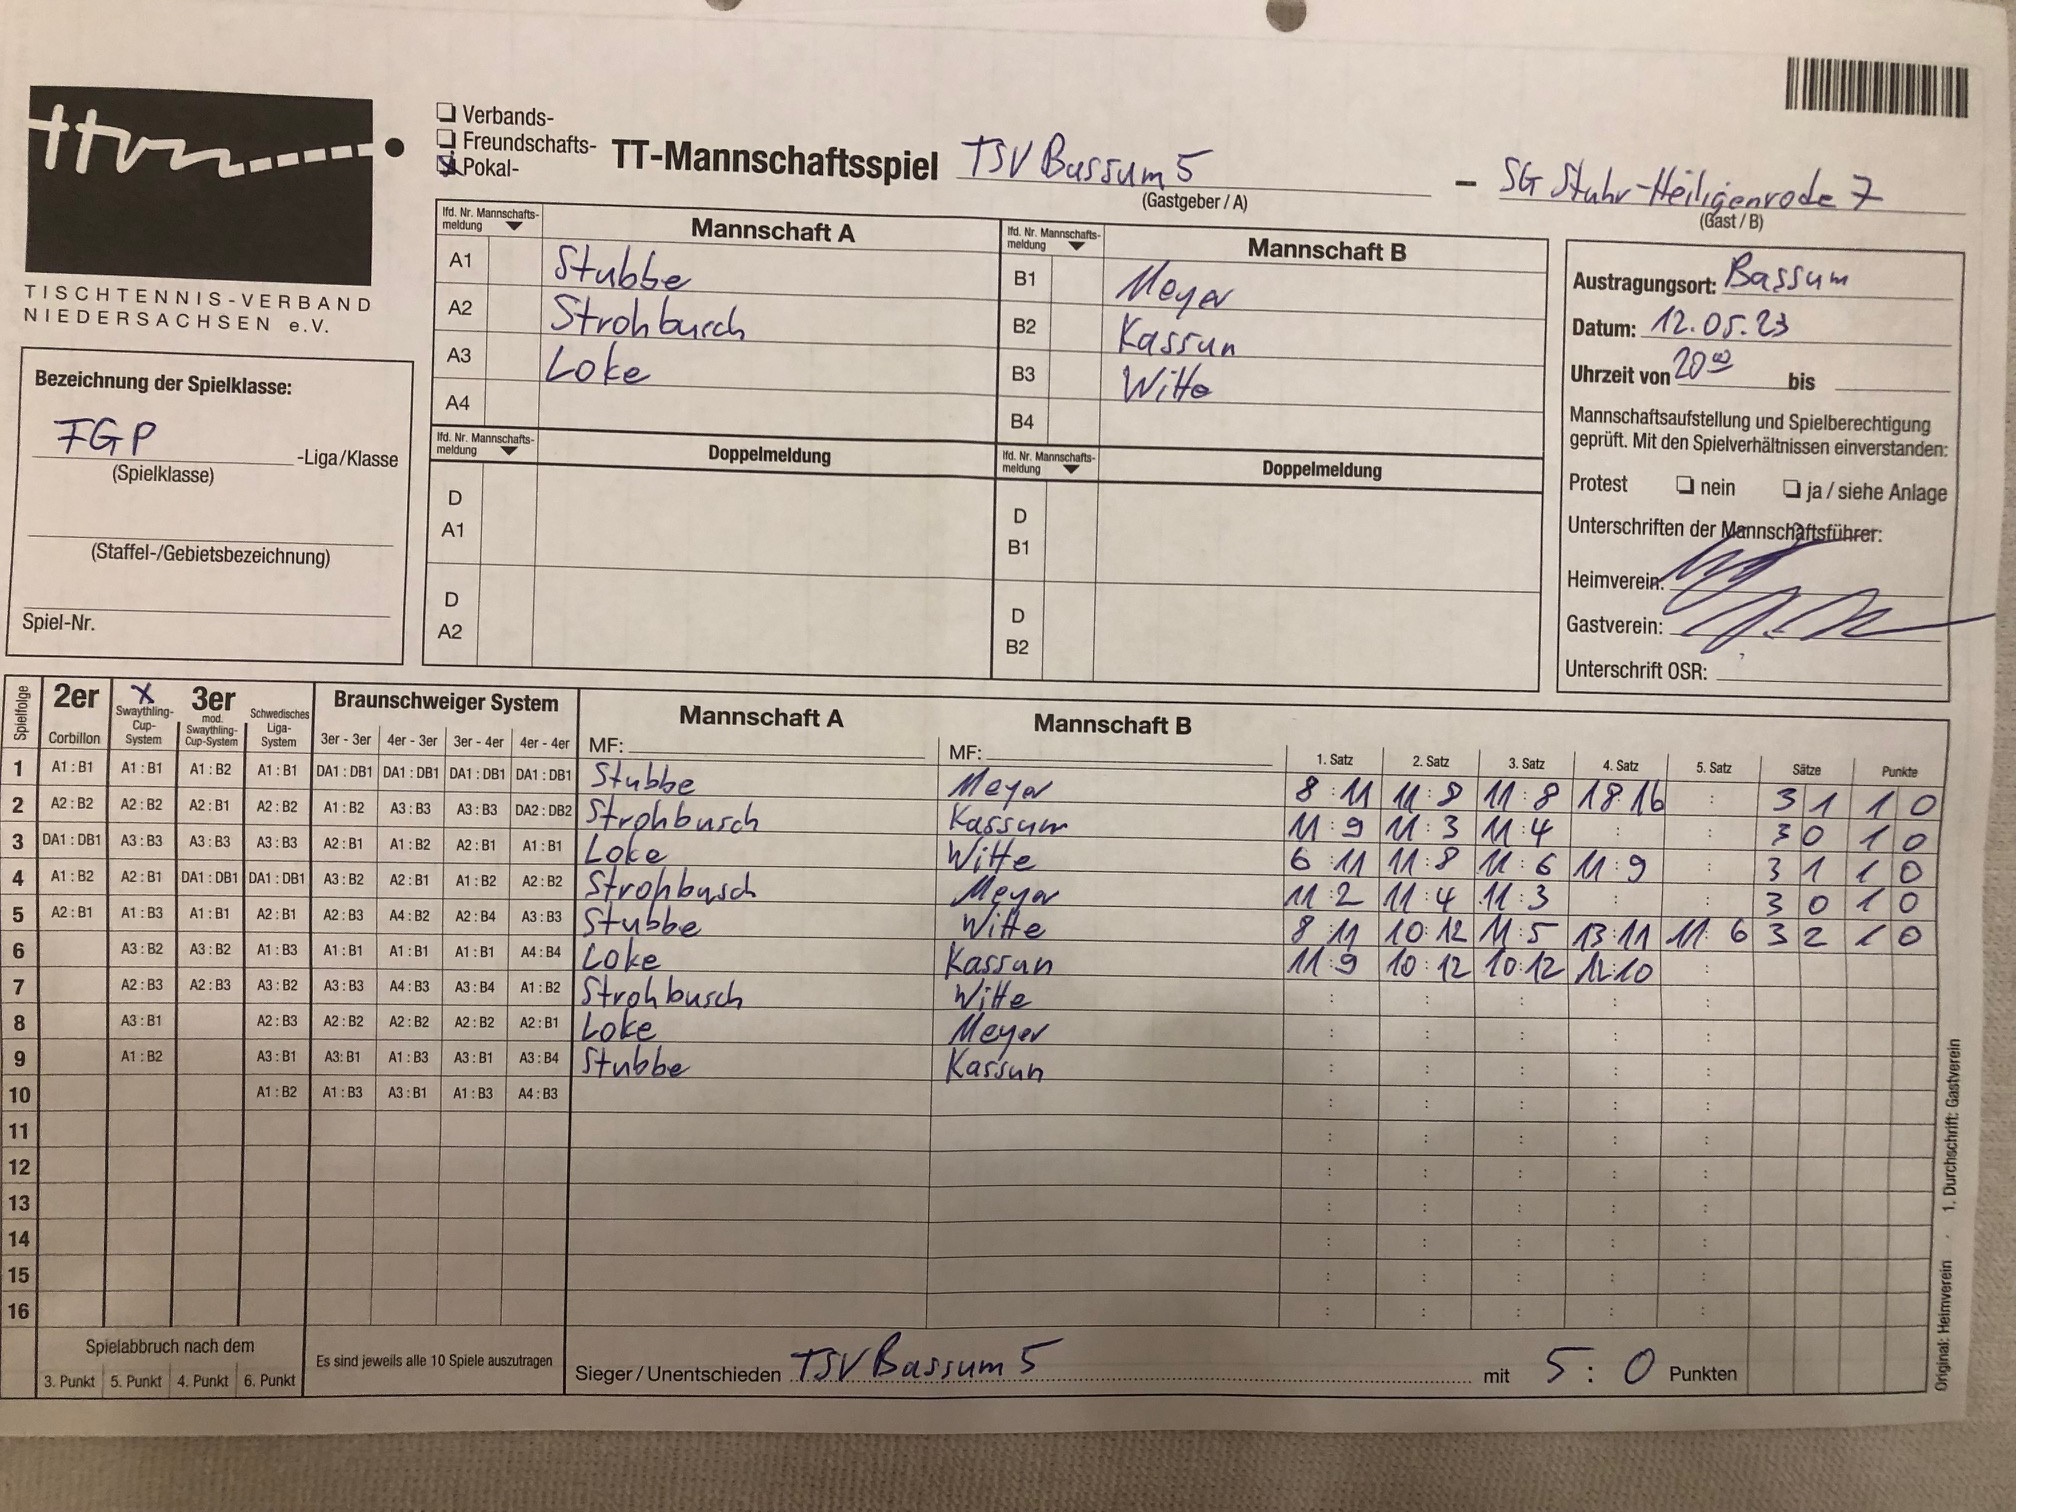 ttvn
TISCHTENNIS-VERBAND
NIEDERSACHSEN e.V.
Verbands-
Freundschafts-
Pokal-
TT-Mannschaftsspiel TSV Bassum 5 – SG Stuhr-Heiligenrode 7
(Gastgeber / A) (Gast / B)
Bezeichnung der Spielklasse:
FGP -Liga/Klasse
(Spielklasse)
(Staffel-/Gebietsbezeichnung)
Spiel-Nr.
lfd. Nr. Mannschafts-meldung Mannschaft A lfd. Nr. Mannschafts-meldung Mannschaft B
A1 Stubbe B1 Meyer
A2 Strohbusch B2 Kassun
A3 Loke B3 Witte
A4 B4
lfd. Nr. Mannschafts-meldung Doppelmeldung lfd. Nr. Mannschafts-meldung Doppelmeldung
D A1 D B1
D A2 D B2
Austragungsort: Bassum
Datum: 12.05.23
Uhrzeit von 20 00 bis
Mannschaftsaufstellung und Spielberechtigung
geprüft. Mit den Spielverhältnissen einverstanden:
Protest nein ja / siehe Anlage
Unterschriften der Mannschaftsführer:
Heimverein:
Gastverein:
Unterschrift OSR:
Spielfolge 2er X 3er Braunschweiger System Mannschaft A Mannschaft B
Corbillon Swaythling-Cup-System mod. Swaythling-Cup-System Schwedisches Liga-System 3er - 3er 4er - 3er 3er - 4er 4er - 4er MF: MF: 1. Satz 2. Satz 3. Satz 4. Satz 5. Satz Sätze Punkte
1 A1 : B1 A1 : B1 A1 : B2 A1 : B1 DA1 : DB1 DA1 : DB1 DA1 : DB1 DA1 : DB1 Stubbe Meyer 8 : 11 11 : 8 11 : 8 18 : 16 : 3 1 1 0
2 A2 : B2 A2 : B2 A2 : B1 A2 : B2 A1 : B2 A3 : B3 A3 : B3 DA2 : DB2 Strohbusch Kassum 11 : 9 11 : 3 11 : 4 : : 3 0 1 0
3 DA1 : DB1 A3 : B3 A3 : B3 A3 : B3 A2 : B1 A1 : B2 A2 : B1 A1 : B1 Loke Witte 6 : 11 11 : 8 11 : 6 11 : 9 : 3 1 1 0
4 A1 : B2 A2 : B1 DA1 : DB1 DA1 : DB1 A3 : B2 A2 : B1 A1 : B2 A2 : B2 Strohbusch Meyer 11 : 2 11 : 4 11 : 3 : : 3 0 1 0
5 A2 : B1 A1 : B3 A1 : B1 A2 : B1 A2 : B3 A4 : B2 A2 : B4 A3 : B3 Stubbe Witte 8 : 11 10 : 12 11 : 5 13 : 11 11 : 6 3 2 1 0
6 A3 : B2 A3 : B2 A1 : B3 A1 : B1 A1 : B1 A1 : B1 A4 : B4 Loke Kassun 11 : 9 10 : 12 10 : 12 12 : 10 :
7 A2 : B3 A2 : B3 A3 : B2 A3 : B3 A4 : B3 A3 : B4 A1 : B2 Strohbusch Witte : : : : :
8 A3 : B1 A2 : B3 A2 : B2 A2 : B2 A2 : B2 A2 : B1 Loke Meyer : : : : :
9 A1 : B2 A3 : B1 A3: B1 A1 : B3 A3 : B1 A3 : B4 Stubbe Kassun : : : : :
10 A1 : B2 A1 : B3 A3 : B1 A1 : B3 A4 : B3 : : : : :
11 : : : : :
12 : : : : :
13 : : : : :
14 : : : : :
15 : : : : :
16 : : : : :
Spielabbruch nach dem
3. Punkt 5. Punkt 4. Punkt 6. Punkt
Es sind jeweils alle 10 Spiele auszutragen
Sieger / Unentschieden TSV Bassum 5 mit 5 : 0 Punkten
Original: Heimverein 1. Durchschrift: Gastverein